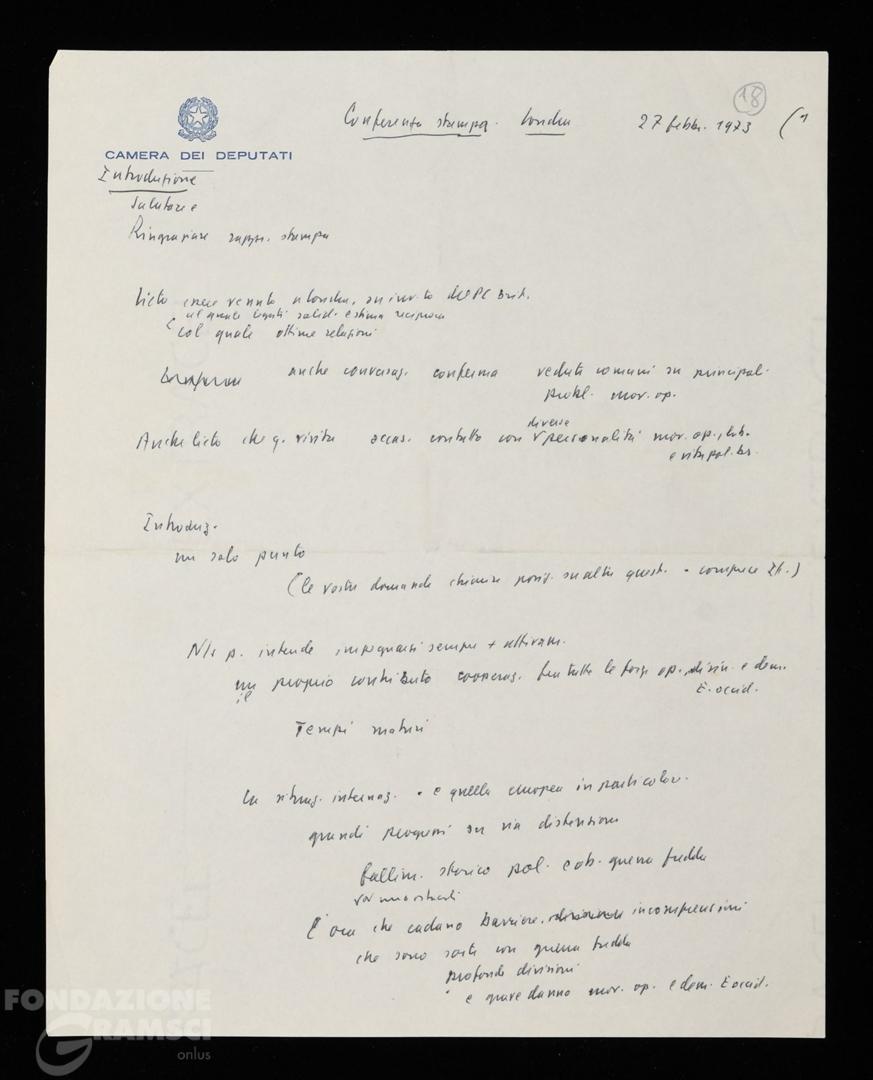 18
Conferenza stampa. Londra 27 febbr. 1973 (1
CAMERA DEI DEPUTATI
Introduzione
Salutare e
Ringraziare rappr. stampa
Lieto essere venuto a Londra, su invito del PC Brit.
al quale legati solid. e stima reciproca
col quale ottime relazioni
anche conversaz. conferma vedute comuni su principal.
probl. mov. op.
Anche lieto che q. visita occas. contatto con diverse personalità mov. op., lab.
e vita pol. br.
Introduz.
un solo punto
(le vostre domande chiarire posiz. su altre quest. - comprese It.)
N/s p. intende impegnarsi sempre + attivam.
un proprio contributo cooperaz. fra tutte le forze op., e dem.
il E. occid.
Tempi maturi
La situaz. internaz. - e quella europea in particolar.
grandi progressi su via distensione
fallim. storico pol. e ob. guerra fredda
È ora che cadano barriere, incomprensioni
che sono sorte con guerra fredda
profonde divisioni
e grave danno mov. op. e dem. E occid.
FONDAZIONE
GRAMSCI
onlus